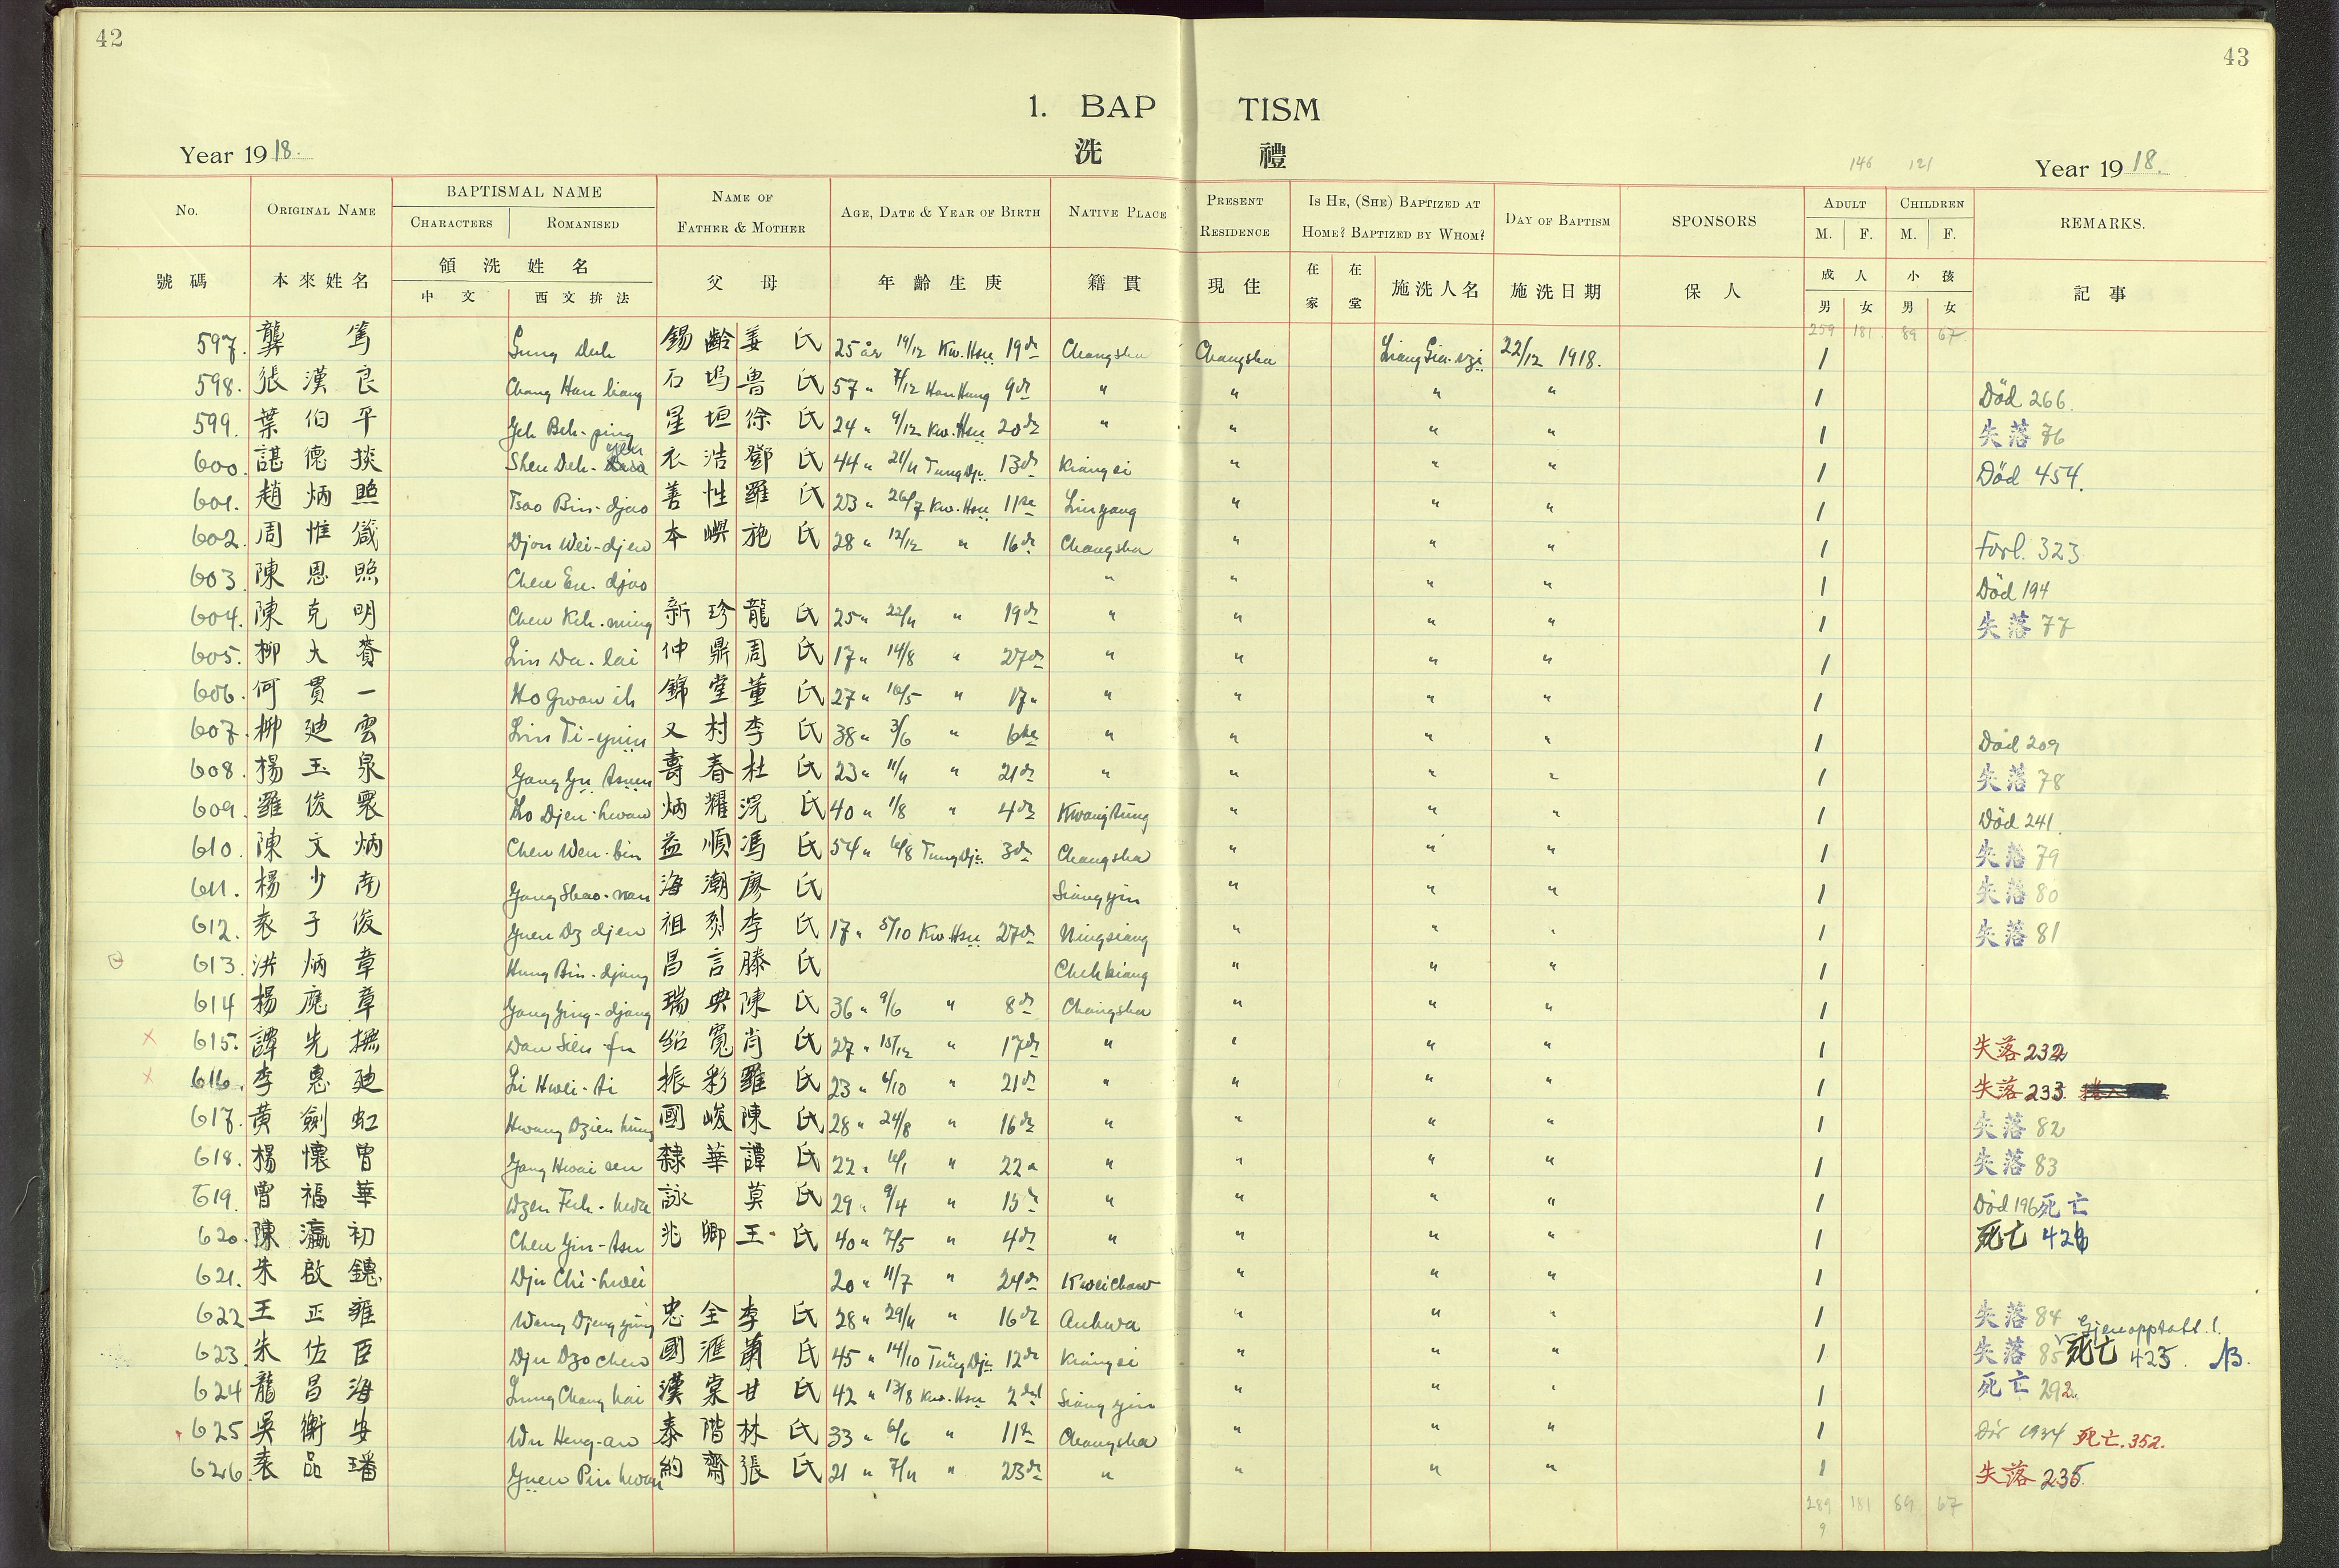 42
43
1. BAP TISM
洗 禮
Year 19 18.
146 121
Year 19 18.
No. ORIGINAL NAME BAPTISMAL NAME NAME OF FATHER & MOTHER AGE, DATE & YEAR OF BIRTH NATIVE PLACE PRESENT RESIDENCE IS HE, (SHE) BAPTIZED AT HOME? BAPTIZED BY WHOM? DAY OF BAPTISM SPONSORS ADULT CHILDREN REMARKS.
CHARACTERS ROMANISED M. F. M. F.
號碼 本來姓名 領洗姓名 父母 年齡生庚 籍貫 現住 在家 在堂 施洗人名 施洗日期 保人 成人 小孩 記事
中文 西文拚法 男 女 男 女
259 181 89 67
597. 龔 篤 Gung Duh 錫齡 姜氏 25 år 19/12 Kw. Hsü 19de Changsha Changsha 22/12 1918. 1
598. 張漢良 Chang Han liang 石塢 魯氏 57 " 7/12 9de " " " " 1 Död 266.
599. 葉伯平 Yeh Beh-ping 星垣 徐氏 24 " 9/12 Kw. Hsü 20de " " " " 1 失落 76
600. 諶德 Shen Deh- yen 衣浩 鄧氏 44 " 21/11 13de Kiangsi " " " 1 Död 454.
601. 趙炳照 Tsao Bin-djao 善性 羅氏 23 " 26/7 Kw. Hsü 11te Linyang " " " 1
602. 周惟 Djou Wei-djen 本嶼 施氏 28 " 12/12 " 16de Changsha " " " 1 Forl. 323
603. 陳恩照 Chen En-djao " " " " 1 Död 194
604. 陳克明 Chen Keh-ming 新珍 龍氏 25 " 22/11 " 19de " " " " 1 失落 77
605. 柳大賚 Liu Da-lai 仲鼎 周氏 17 " 14/8 " 27de " " " " 1
606. 何貫一 Ho Gwan ih 錦堂 董氏 27 " 16/5 " 17 " " " " " 1
607. 柳廸雲 Liu Ti-yuin 又村 李氏 38 " 3/6 " 6te " " " " 1 Död 209
608. 楊玉泉 Yang Yü tsuen 壽春 杜氏 23 " 11/11 " 21de " " " " 1 失落 78
609. 羅俊寰 Lo Djen-hwan 炳耀 浣氏 40 " 1/8 " 4de Kwangtung " " " 1 Död 241.
610. 陳文炳 Chen Wen-bin 益順 馮氏 54 " 3de Changsha " " " 1 失落 79
611. 楊少南 Yang Shao-nan 海潮 廖氏 Siangyin " " " 1 失落 80
612. 袁子俊 Yuen Dz djen 祖烈 李氏 17 " 5/10 Kw. Hsü 27de Ningsiang " " " 1 失落 81
613. 洪炳章 Hung Bin-djang 昌言 滕氏 Chehkiang " " " 1
614 楊應章 Yang Ying-djang 瑞典 陳氏 36 " 9/6 " 8de Changsha " " " 1
× 615. 譚先撫 Dan Sien-fu 紹寬 肖氏 27 " 15/12 " 17de " " " " 1 失落 232
× 616. 李惠廸 Li Hwei-ti 振彩 羅氏 23 " 6/10 " 21de " " " " 1 失落 233.
617. 黃劍虹 Hwang Dzien hung 國峻 陳氏 28 " 24/8 " 16de " " " " 1 失落 82
618. 楊懷曾 Yang Hwai sen 隸華 譚氏 22 " " 22 " " " " " 1 失落 83
619. 曾福華 Dzen Fuh-hwa 詠 莫氏 29 " 9/4 " 15de " " " " 1 Död 196 死亡
620. 陳瀛初 Chen Yin-tsu 兆卿 王氏 40 " 7/5 " 4de " " " " 1 死亡 426
621. 朱啟鏸 Dju Chi-hwei 20 " 11/7 " 24de Kweichow " " " 1
622 王正雍 Wang Djeng yung 忠全 李氏 28 " 29/11 " 16de Anhwa " " " 1 失落 84
623. 朱佐臣 Dju Dzo chen 國滙 蕭氏 45 " 14/10 12te Kiangsi " " " 1 失落 85 Gjenopptatt! 死亡 425.
624 龍昌海 Lung Chang hai 漢棠 甘氏 42 " 13/8 Kw. Hsü 2det Siangyin " " " 1 死亡 292.
625 吳衡安 Wu Heng-an 泰階 林氏 33 " 6/6 " 11te Changsha " " " 1 Dör 1934 死亡. 352.
626. 袁品璠 Yuen Pin hwan 約齋 張氏 21 " 7/11 " 23de " " " " 1 失落 235.
289 181 89 67
9